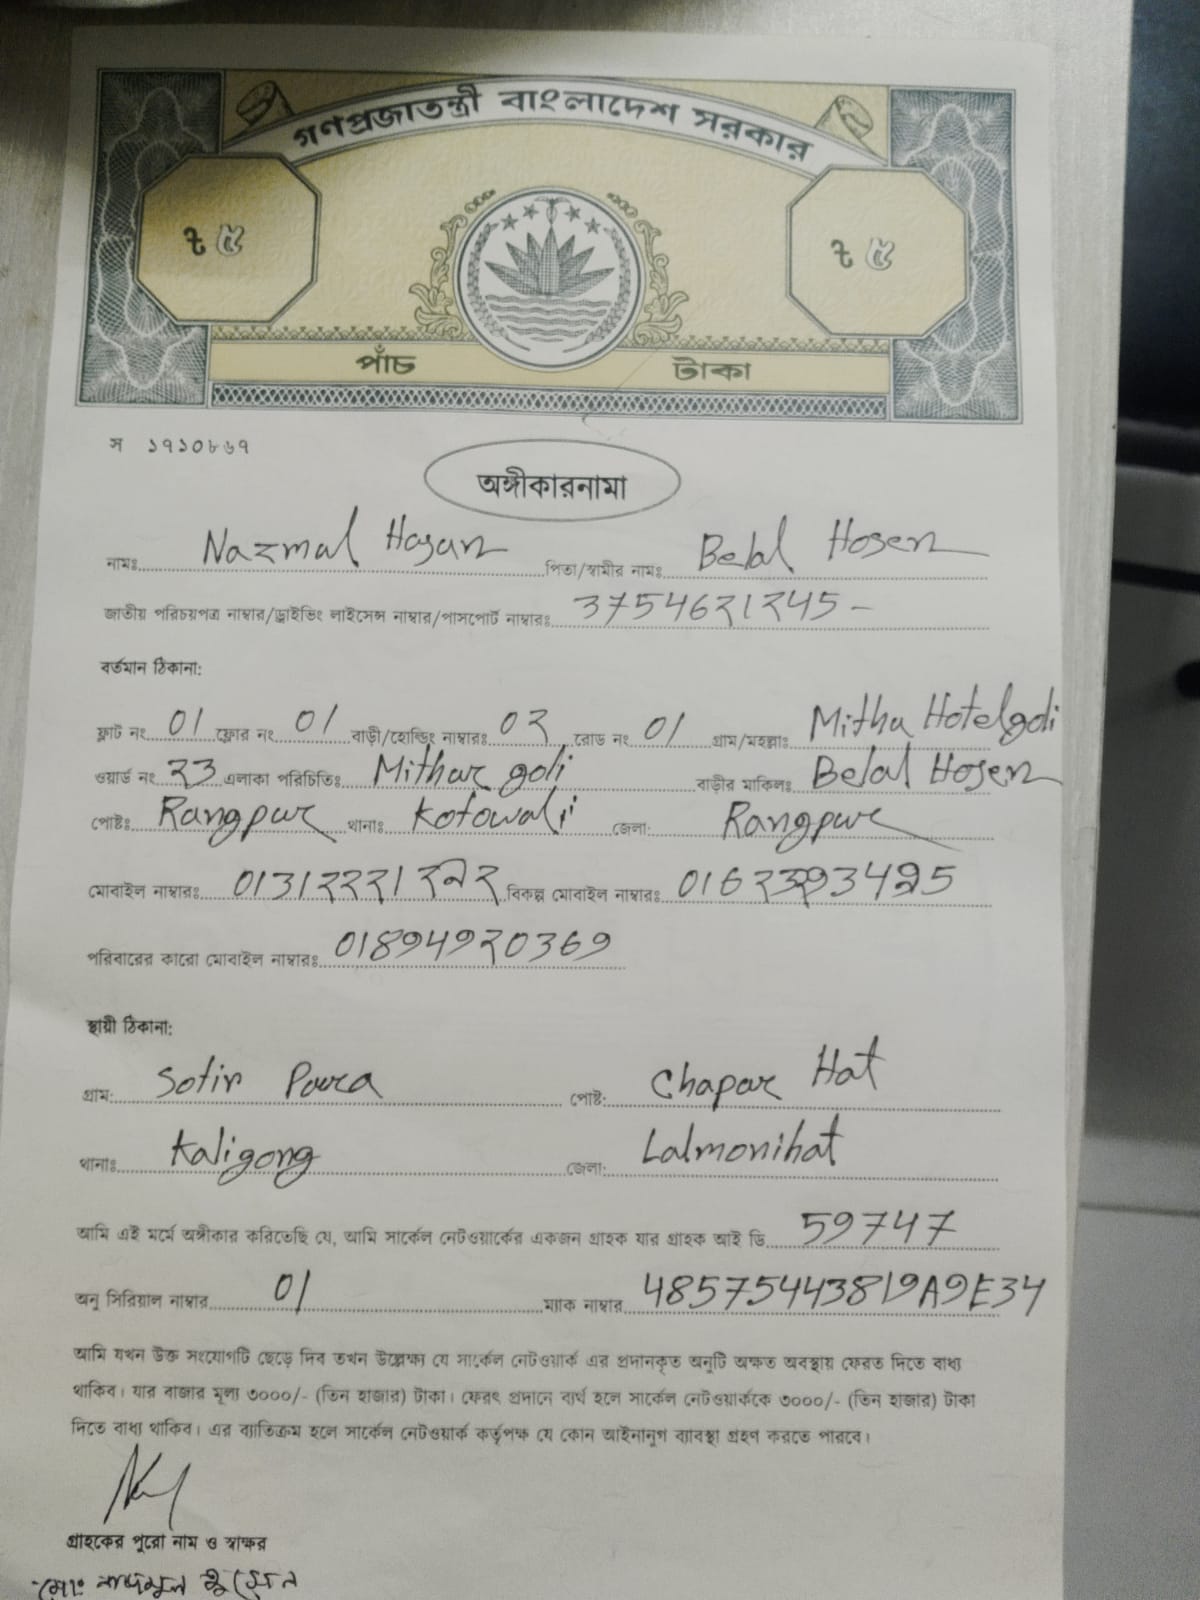 গণপ্রজাতন্ত্রী বাংলাদেশ সরকার
৳ ৫ ৳ ৫
পাঁচ টাকা
স ১৭১০৮৬৭
অঙ্গীকারনামা
নামঃ Nazmal Hasan পিতা/স্বামীর নামঃ Belal Hosen
জাতীয় পরিচয়পত্র নাম্বার/ড্রাইভিং লাইসেন্স নাম্বার/পাসপোর্ট নাম্বারঃ 3754621245
বর্তমান ঠিকানা:
ফ্লাট নং 01 ফ্লোর নং 01 বাড়ী/হোল্ডিং নাম্বারঃ 02 রোড নং 01 গ্রাম/মহল্লাঃ Mitha Hotelgoli
ওয়ার্ড নং 23 এলাকা পরিচিতিঃ Mithar goli বাড়ীর মাকিলঃ Belal Hosen
পোষ্টঃ Rangpur থানাঃ Kotowali জেলা: Rangpur
মোবাইল নাম্বারঃ বিকল্প মোবাইল নাম্বারঃ
পরিবারের কারো মোবাইল নাম্বারঃ 01894920369
স্থায়ী ঠিকানা:
গ্রাম: Sotir Para পোষ্ট: Chapar Hat
থানাঃ Kaligong জেলা: Lalmonihat
আমি এই মর্মে অঙ্গীকার করিতেছি যে, আমি সার্কেল নেটওয়ার্কের একজন গ্রাহক যার গ্রাহক আই ডি 59747
অনু সিরিয়াল নাম্বার 01 ম্যাক নাম্বার 48575443819A9E34
আমি যখন উক্ত সংযোগটি ছেড়ে দিব তখন উল্লেক্ষ্য যে সার্কেল নেটওয়ার্ক এর প্রদানকৃত অনুটি অক্ষত অবস্থায় ফেরত দিতে বাধ্য
থাকিব। যার বাজার মূল্য ৩০০০/- (তিন হাজার) টাকা। ফেরৎ প্রদানে ব্যর্থ হলে সার্কেল নেটওয়ার্ককে ৩০০০/- (তিন হাজার) টাকা
দিতে বাধ্য থাকিব। এর ব্যাতিক্রম হলে সার্কেল নেটওয়ার্ক কর্তৃপক্ষ যে কোন আইনানুগ ব্যাবস্থা গ্রহণ করতে পারবে।
গ্রাহকের পুরো নাম ও স্বাক্ষর
মোঃ নাজমুল হুসেন